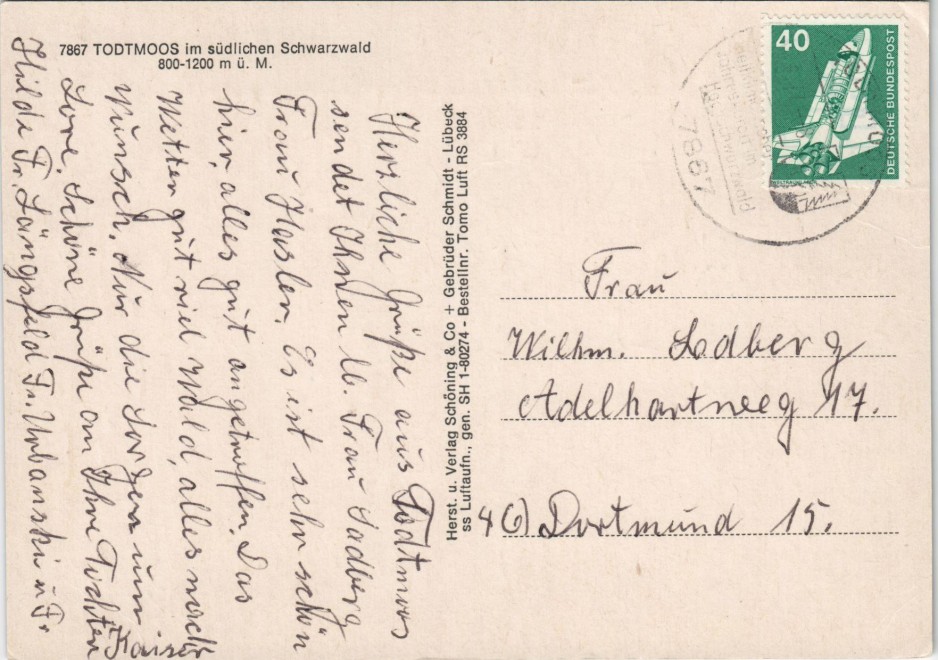 7867 TODTMOOS im südlichen Schwarzwald
800-1200 m ü. M.
Herzliche Grüße aus Todtmoos
sendet Ihnen lb. Frau Ladberg
Frau Hasler. Es ist sehr schön
hier, alles gut angetroffen. Das
Wetter gut viel Wald, alles nach
Wunsch. Nur die Sorgen um
Lore. Schöne Grüße an Ihre Tochter
Hilde Fr. Längsfeld Fr. Urbanski u Fr.
Kaiser
Herst. u. Verlag Schöning & Co + Gebrüder Schmidt - Lübeck
ss Luftaufn., gen. SH 1-80274 - Bestellnr. Tomo Luft RS 3884
40
DEUTSCHE BUNDESPOST
7867
Schwarzwald
Frau
Wilhm. Ladberg
Adelhartweg 17.
46) Dortmund 15.